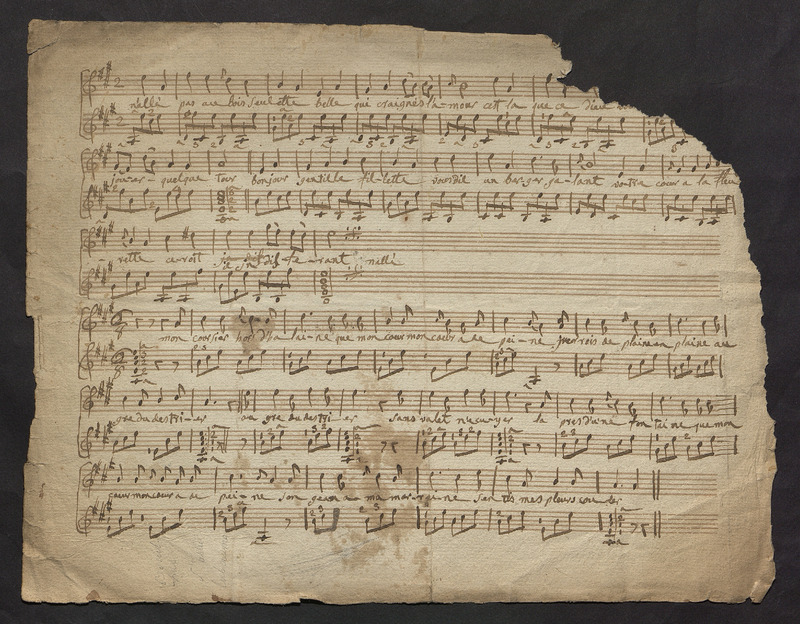 nallé pas aux bois seulette belle qui craignés la-mour cest la que ce Dieu
jou-er- quelque tour bonjour gentille fil-lette vousdit un ber-ger ga-lant votre cœur a la fleu
rette ce-roit fa-rant nallé
mon coursier hors d'ha-lai-ne que mon cœur mon cœur a de pei-ne jerrois de plaine en plaine au
gré du destri-er au gre du destri-er sans valet n'ecu-yer la pres d'une fon-tai-ne que mon
cœur mon cœur a de pei-ne son geant a ma mar-rai-ne sen tis mes pleurs cou-ler